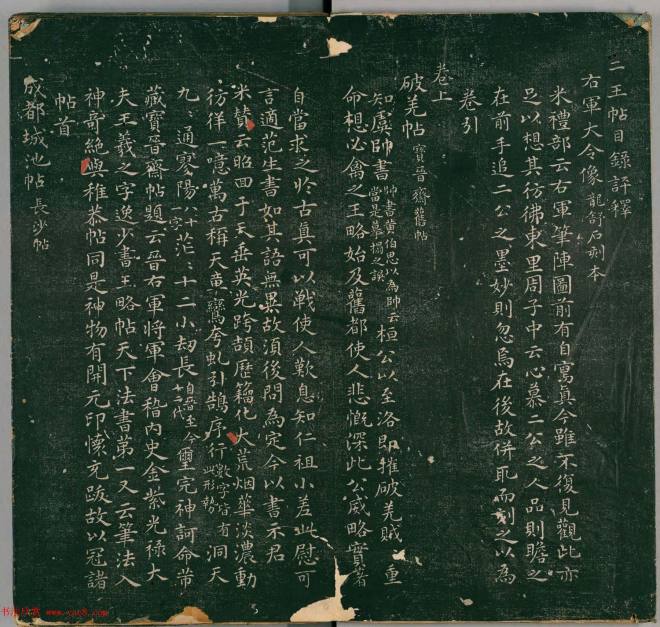 二王帖目錄評釋
右軍大令像 龍舒石刻本
米禮部云右軍筆陣圖前有自寫真今雖不復見觀此亦
足以想其彷彿東里周子中云心慕二公之人品則瞻之
在前手追二公之墨妙則忽焉在後故併取而刻之以為
卷引
卷上
破羌帖 寶晉齋舊帖
知虞帥書 帥書黃伯思以為帥云當是摹搨之誤 桓公以至洛即摧破羌賊 重
命想必禽之王略始及舊都使人悲慨深此公威略實著
自當求之於古真可以戰使人歎息知仁祖小差此慰可
言適范生書如其語無異故須後問為定今以書示君
米贊云昭回于天垂英光跨頡歷籀化大荒烟華淡濃動
彷徉一噫萬古稱天章鸞夸虬引鵠序行 數字皆此形勢 有洞天
九〻通寥陽 八十一字 茫〻十二小劫長 自晉至今十二代 璽完神訶命芾
藏寶晉齋帖題云晉右軍將軍會稽內史金紫光祿大
夫王羲之字逸少書王略帖天下法書第一又云筆法入
神奇絕與稚恭帖同是神物有開元印懷充跋故以冠諸
帖首
成都城池帖 長沙帖
5
书法欣赏 www.yac8.com